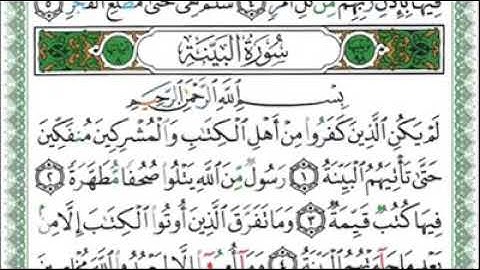 فِيهَا بِإِذْنِ رَبِّهِم مِّن كُلِّ أَمْرٍ ٤ سَلَٰمٌ هِىَ حَتَّىٰ مَطْلَعِ ٱلْفَجْرِ ٥
سُورَةُ البَيِّنَةِ
بِسْمِ ٱللَّهِ ٱلرَّحْمَٰنِ ٱلرَّحِيمِ
لَمْ يَكُنِ ٱلَّذِينَ كَفَرُوا۟ مِنْ أَهْلِ ٱلْكِتَٰبِ وَٱلْمُشْرِكِينَ مُنفَكِّينَ
حَتَّىٰ تَأْتِيَهُمُ ٱلْبَيِّنَةُ ١ رَسُولٌ مِّنَ ٱللَّهِ يَتْلُوا۟ صُحُفًا مُّطَهَّرَةً ٢
فِيهَا كُتُبٌ قَيِّمَةٌ ٣ وَمَا تَفَرَّقَ ٱلَّذِينَ أُوتُوا۟ ٱلْكِتَٰبَ إِلَّا مِنۢ
بَعْدِ مَا جَآءَتْهُمُ ٱلْبَيِّنَةُ ٤ وَمَآ أُمِرُوٓا۟ إِلَّا لِيَعْبُدُوا۟ ٱللَّهَ مُخْلِصِينَ